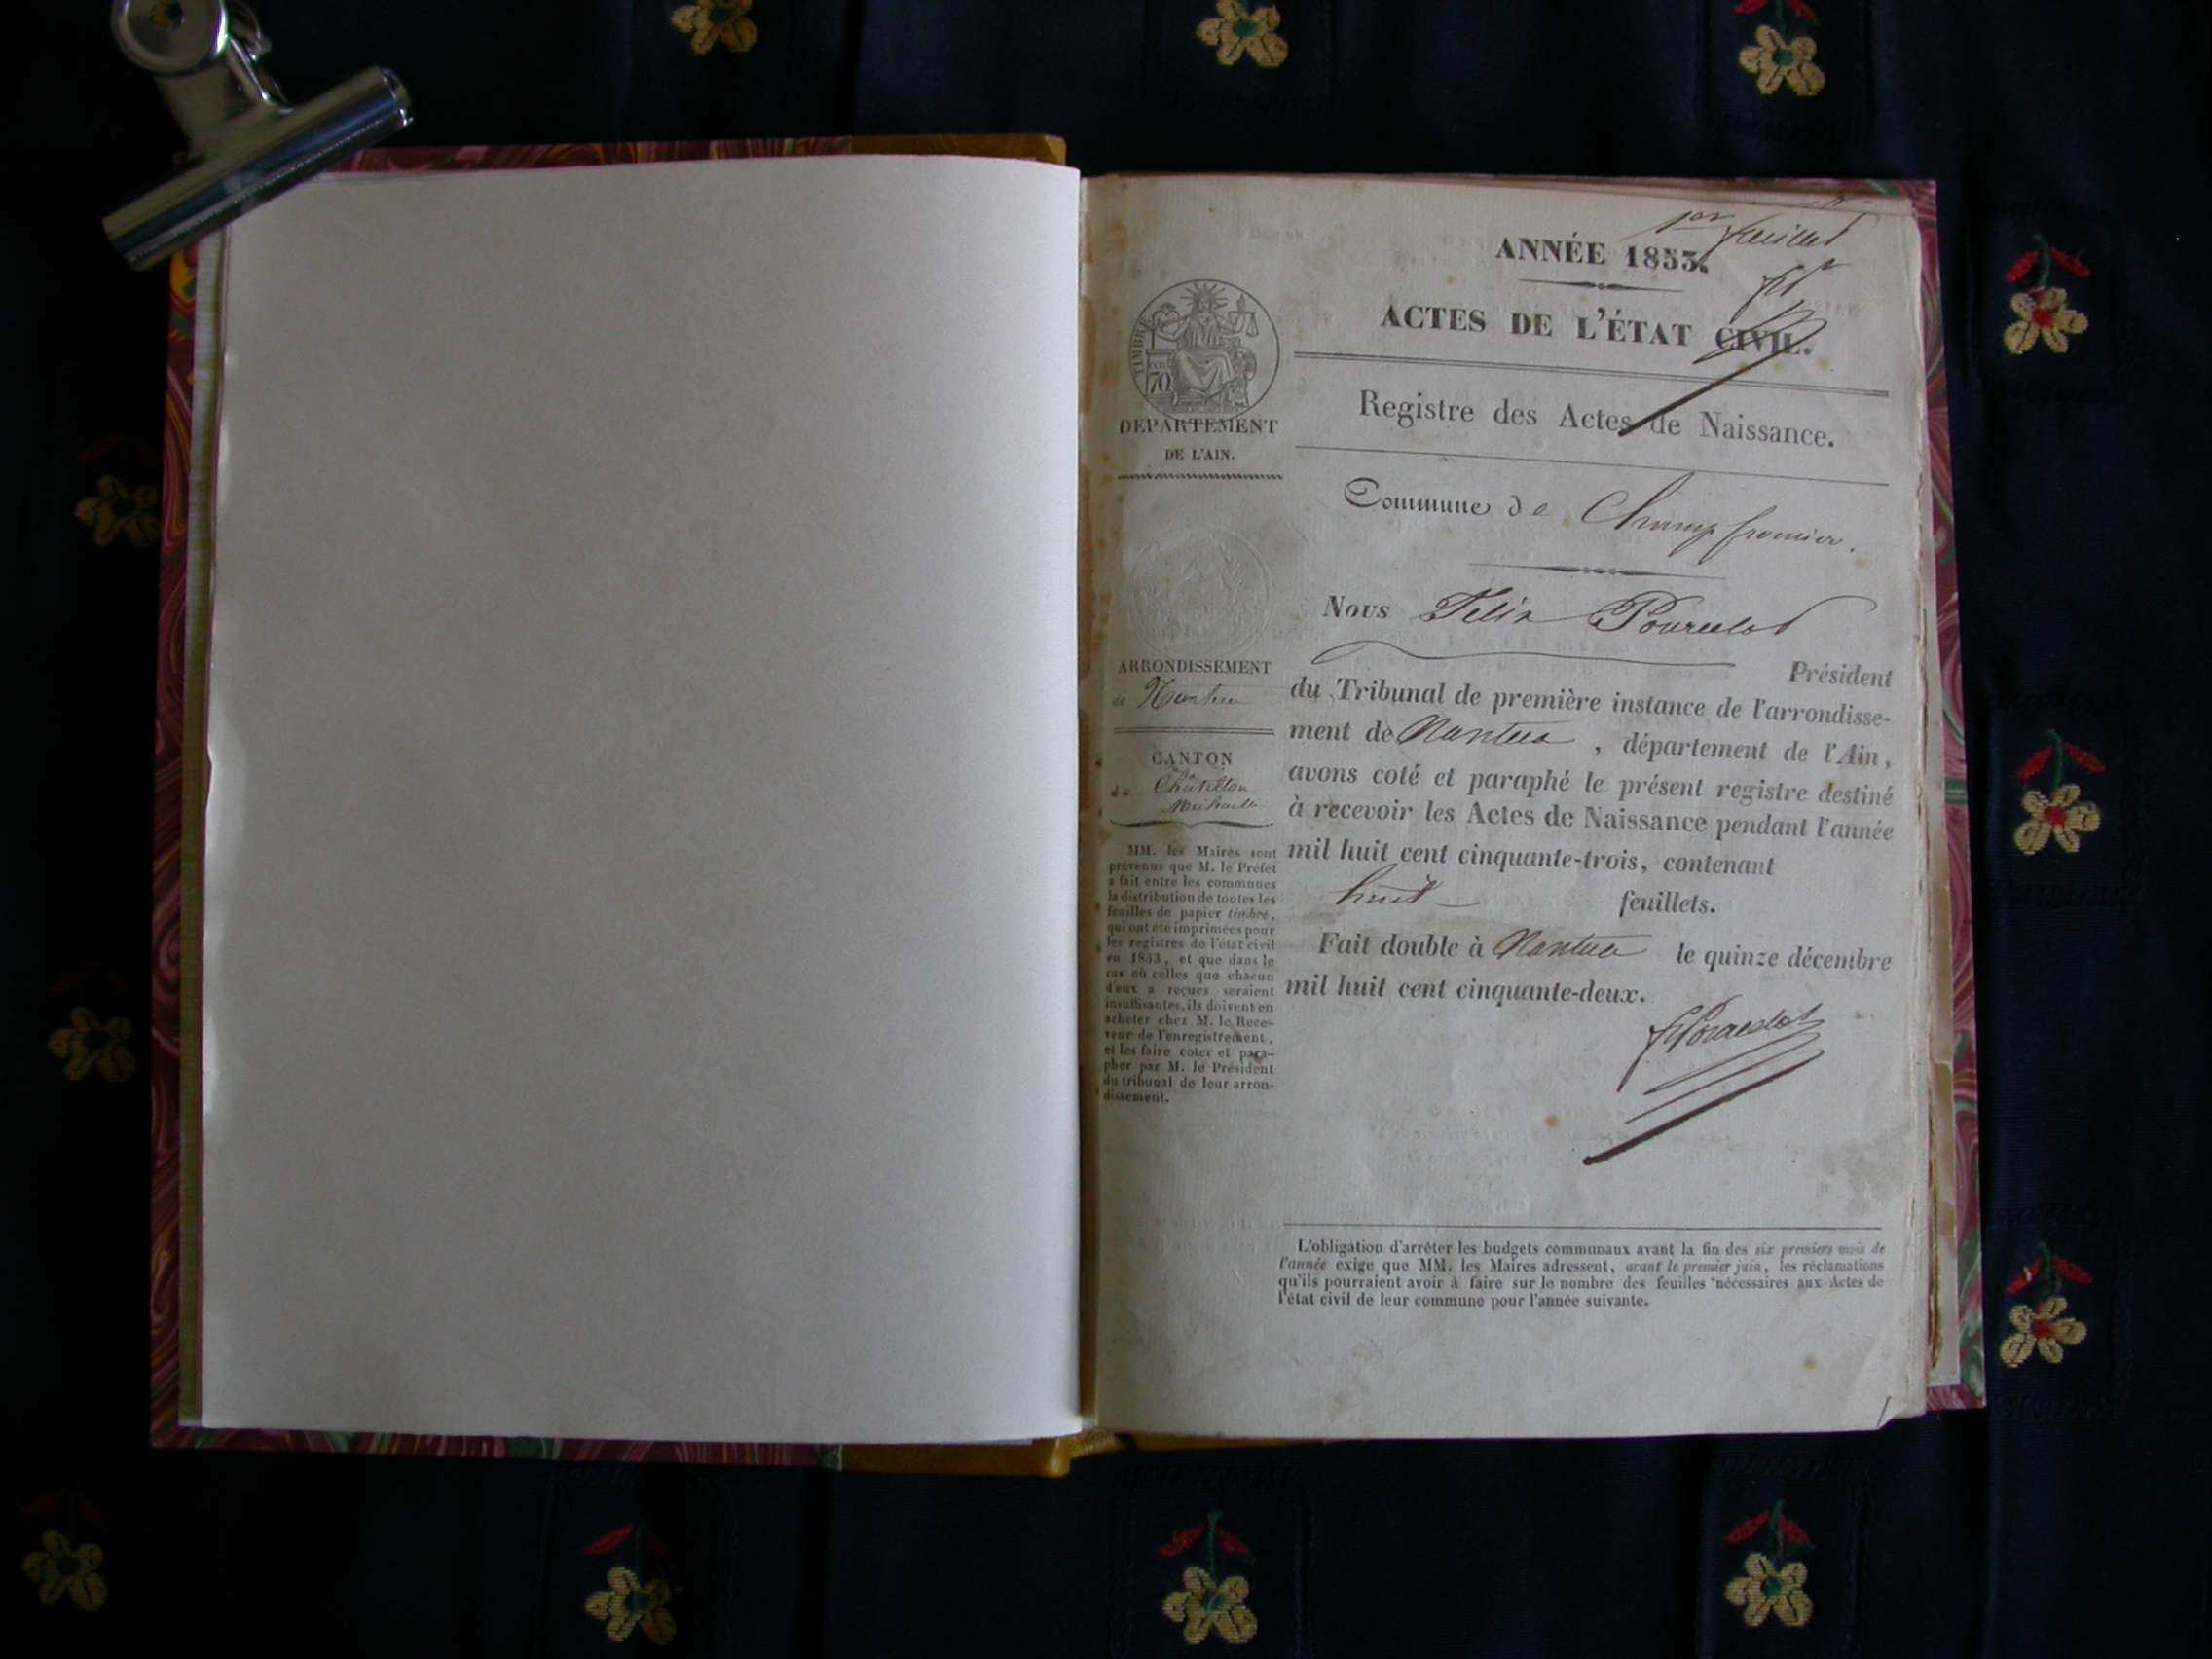 1er feuillet
ANNÉE 1853.
ACTES DE L'ÉTAT CIVIL.
Registre des Actes de Naissance.
Commune de Champfromier.
Nous Félix Pourcelot
Président
du Tribunal de première instance de l'arrondisse-
ment de Nantua, département de l'Ain,
avons coté et paraphé le présent registre destiné
à recevoir les Actes de Naissance pendant l'année
mil huit cent cinquante-trois, contenant
huit feuillets.
Fait double à Nantua le quinze décembre
mil huit cent cinquante-deux.
FPourcelot
TIMBRE
70
DEPARTEMENT
DE L'AIN.
ARRONDISSEMENT
de Nantua
CANTON
de Châtillon
Michaille
MM. les Maires sont
prévenus que M. le Préfet
a fait entre les communes
la distribution de toutes les
feuilles de papier timbré,
qui ont été imprimées pour
les registres de l'état civil
en 1853, et que dans le
cas où celles que chacun
d'eux a reçues seraient
insuffisantes, ils doivent en
acheter chez M. le Rece-
veur de l'enregistrement,
et les faire coter et para-
pher par M. le Président
du tribunal de leur arron-
dissement.
L'obligation d'arrêter les budgets communaux avant la fin des six premiers mois de
l'année exige que MM. les Maires adressent, avant le premier juin, les réclamations
qu'ils pourraient avoir à faire sur le nombre des feuilles nécessaires aux Actes de
l'état civil de leur commune pour l'année suivante.